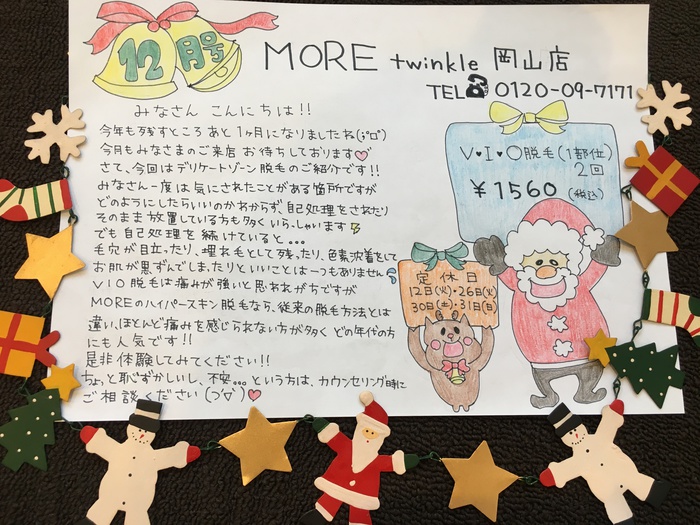 12月号
MORE twinkle 岡山店
TEL☎0120-09-7171
みなさん こんにちは!!
今年も残すところ あと1ヶ月になりましたね(;ﾟロﾟ)
今月もみなさまのご来店 お待ちしております♡
さて、今回はデリケートゾーン脱毛のご紹介です!!
みなさん一度は気にされたことがある箇所ですが
どのようにしたらいいのかわからず、自己処理をされたり
そのまま放置している方も多くいらっしゃいます
でも自己処理を続けていると...
毛穴が目立ったり、埋れ毛として残ったり、色素沈着をして
お肌が黒ずんでしまったりといいことは一つもありません
VIO脱毛は痛みが強いと思われがちですが
MOREのハイパースキン脱毛なら、従来の脱毛方法とは
違い、ほとんど痛みを感じられない方が多く どの年代の方
にも人気です!!
是非体験してみてください!!
ちょっと恥ずかしいし、不安。。。という方は、カウンセリング時に
ご相談ください(つ'▽')♡
V♥I♥O脱毛(1部位)
2回
¥1560(税込)
定休日
12日(火)・26日(火)
30日(土)・31日(日)